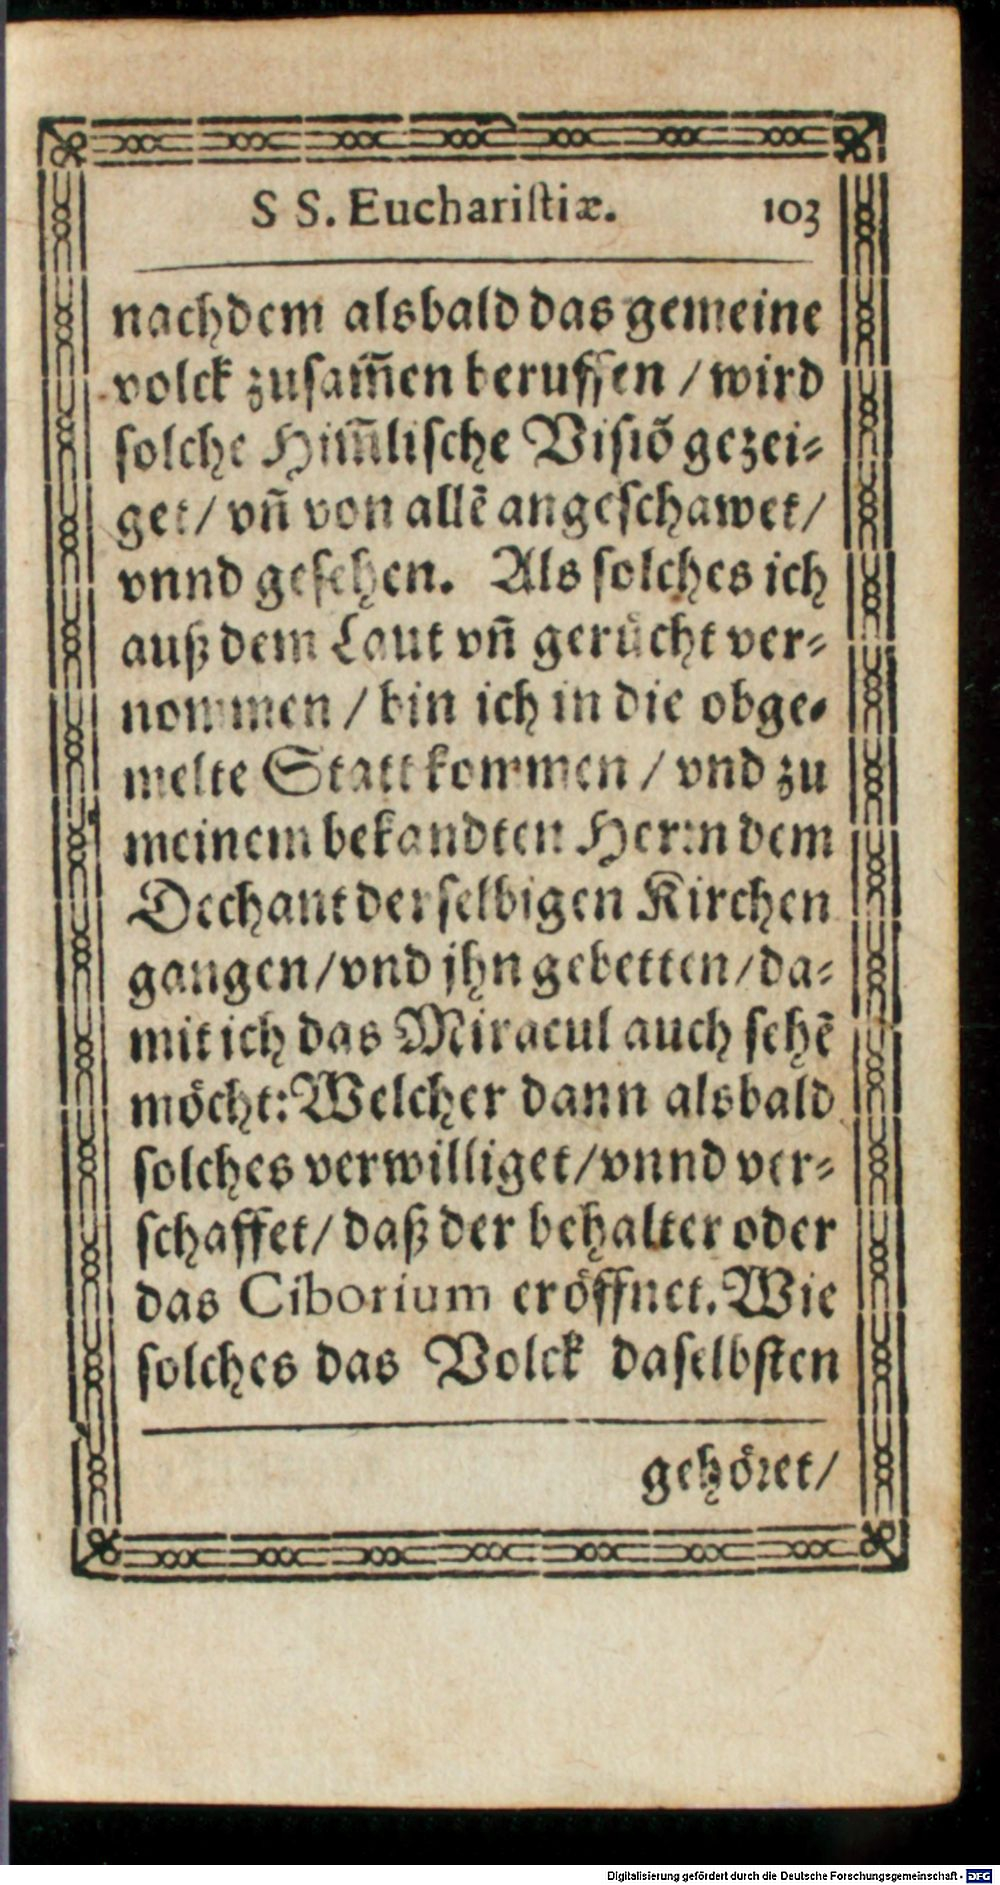 S S. Euchariſtiæ. 103
nachdem alsbald das gemeine
volck zuſam̃en beruffen / wird
ſolche Him̃liſche Viſiõ gezei⸗
get / vñ von allẽ angeſchawet /
vnnd geſehen. Als ſolches ich
auß dem Laut vñ geruͤcht ver⸗
nommen / bin ich in die obge⸗
melte Statt kommen / vnd zu
meinem bekandten Herrn dem
Dechant derſelbigen Kirchen
gangen / vnd jhn gebetten / da⸗
mit ich das Miracul auch ſehẽ
moͤcht: Welcher dann alsbald
ſolches verwilliget / vnnd ver⸗
ſchaffet / daß der behalter oder
das Ciborium eroͤffnet. Wie
ſolches das Volck daſelbſten
gehoͤret /
Digitalisierung gefördert durch die Deutsche Forschungsgemeinschaft - DFG